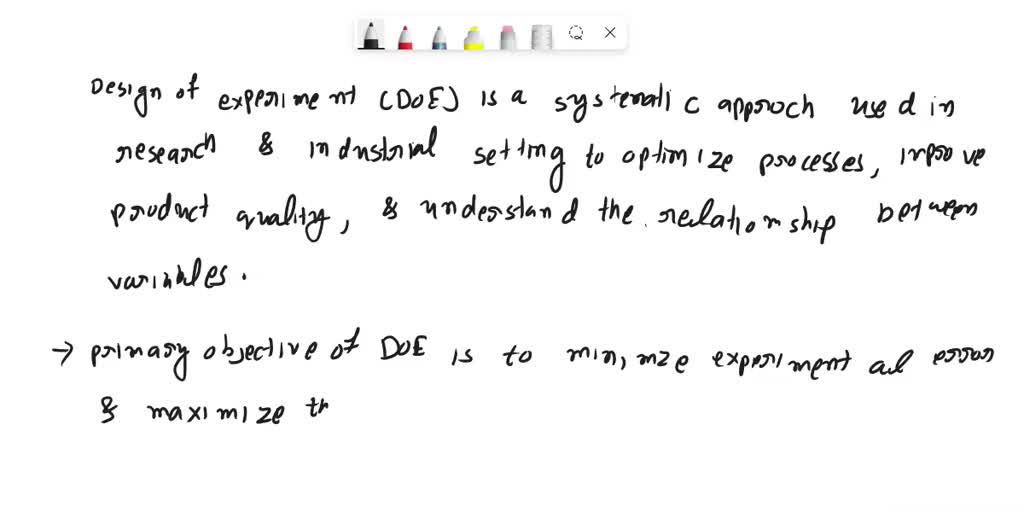 Design of experiment (DOE) is a systematic approch used in
research & industrial setting to optimize processes, improve
product quality, & understand the relationship between
variables.
→ primary objective of DOE is to minimze experimental error
& maximize th